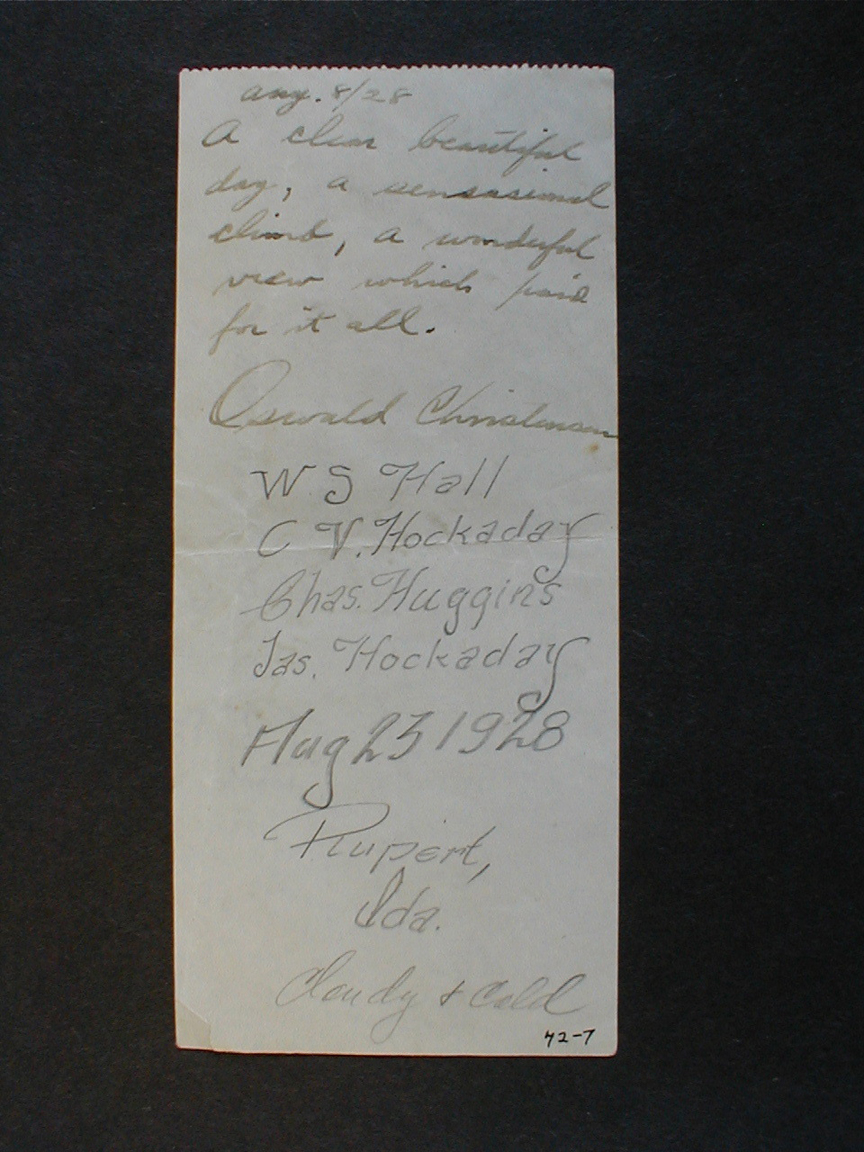 Aug. 8/28
A clear beautiful
day, a sensasional
climb, a wonderful
view which paid
for it all.
Oswald Christensen
W S Hall
C V. Hockaday
Chas. Huggins
Jas. Hockaday
Aug 23 1928
Rupert,
Ida.
Cloudy + Cold
42-7